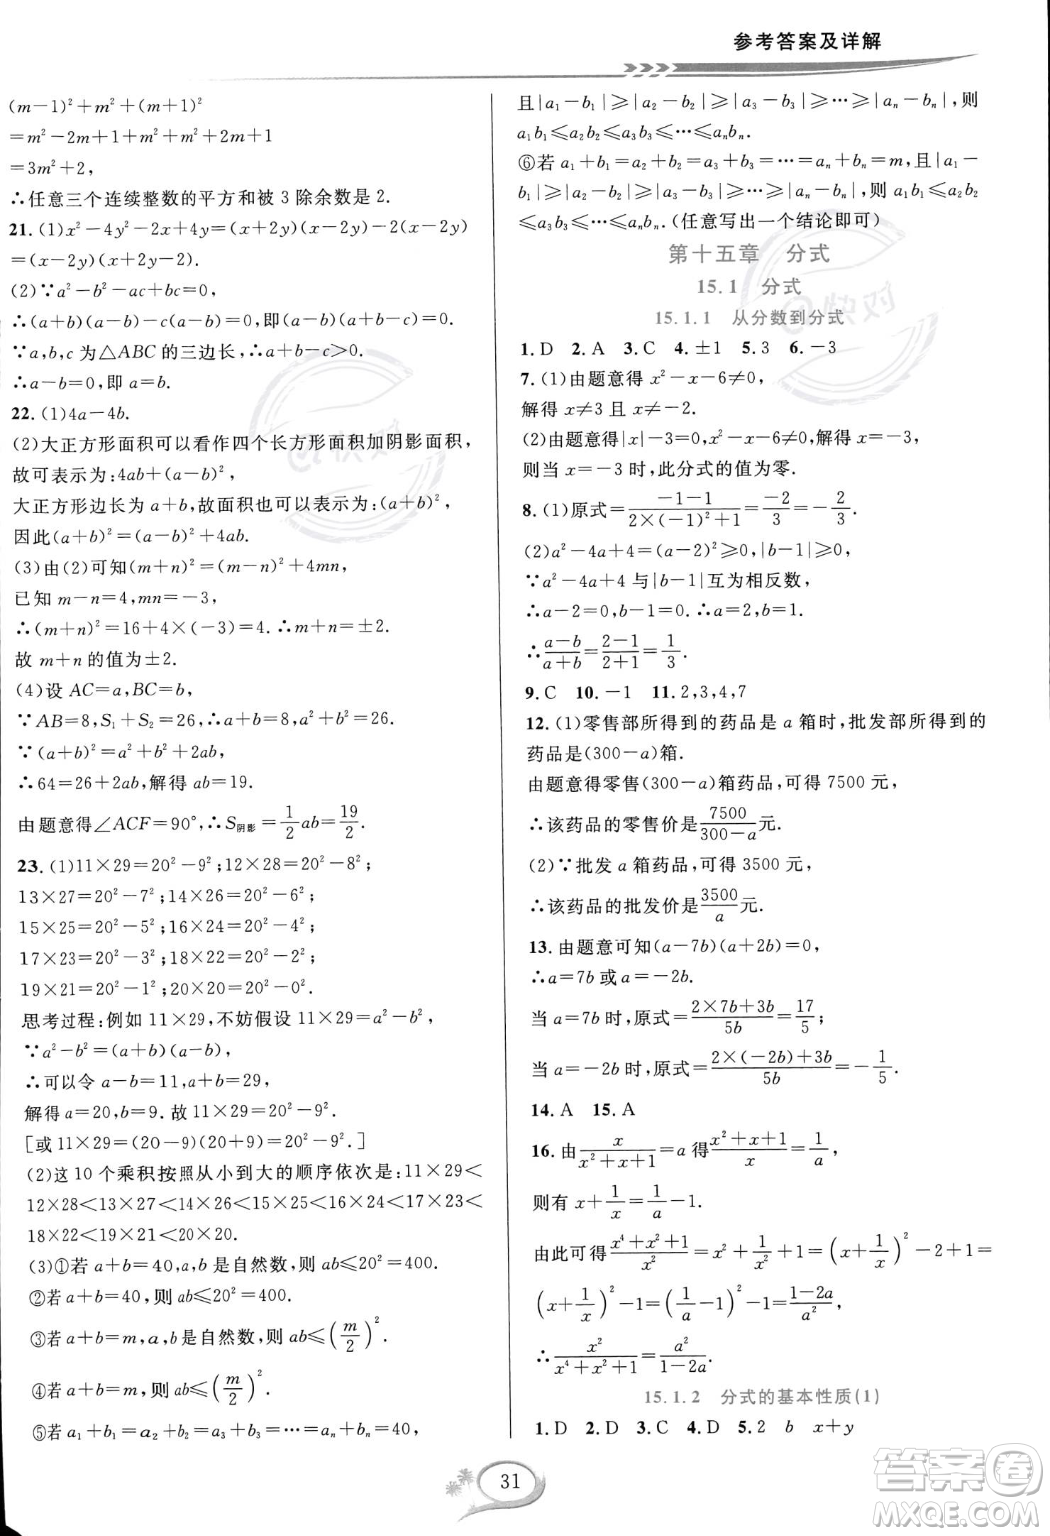 参考答案及详解
(m－1)²＋m²＋(m＋1)²
＝m²－2m＋1＋m²＋m²＋2m＋1
＝3m²＋2,
∴任意三个连续整数的平方和被 3 除余数是 2.
21. (1)x²－4y²－2x＋4y＝(x＋2y)(x－2y)－2(x－2y)
＝(x－2y)(x＋2y－2).
(2)∵a²－b²－ac＋bc＝0,
∴(a＋b)(a－b)－c(a－b)＝0,即(a－b)(a＋b－c)＝0.
∵a,b,c 为△ABC 的三边长,∴a＋b－c＞0.
∴a－b＝0,即 a＝b.
22. (1)4a－4b.
(2)大正方形面积可以看作四个长方形面积加阴影面积,
故可表示为:4ab＋(a－b)²,
大正方形边长为 a＋b,故面积也可以表示为:(a＋b)²,
因此(a＋b)²＝(a－b)²＋4ab.
(3)由(2)可知(m＋n)²＝(m－n)²＋4mn,
已知 m－n＝4,mn＝－3,
∴(m＋n)²＝16＋4×(－3)＝4.∴m＋n＝±2.
故 m＋n 的值为±2.
(4)设 AC＝a,BC＝b,
∵AB＝8,S₁＋S₂＝26,∴a＋b＝8,a²＋b²＝26.
∵(a＋b)²＝a²＋b²＋2ab,
∴64＝26＋2ab,解得 ab＝19.
由题意得∠ACF＝90°,∴S阴影＝1/2 ab＝19/2.
23. (1)11×29＝20²－9²;12×28＝20²－8²;
13×27＝20²－7²;14×26＝20²－6²;
15×25＝20²－5²;16×24＝20²－4²;
17×23＝20²－3²;18×22＝20²－2²;
19×21＝20²－1²;20×20＝20²－0².
思考过程:例如 11×29,不妨假设 11×29＝a²－b²,
∵a²－b²＝(a＋b)(a－b),
∴可以令 a－b＝11,a＋b＝29,
解得 a＝20,b＝9.故 11×29＝20²－9².
[或 11×29＝(20－9)(20＋9)＝20²－9².]
(2)这 10 个乘积按照从小到大的顺序依次是:11×29＜
12×28＜13×27＜14×26＜15×25＜16×24＜17×23＜
18×22＜19×21＜20×20.
(3)①若 a＋b＝40,a,b 是自然数,则 ab≤20²＝400.
②若 a＋b＝40,则 ab≤20²＝400.
③若 a＋b＝m,a,b是自然数,则 ab≤(m/2)².
④若 a＋b＝m,则 ab≤(m/2)².
⑤若 a₁＋b₁＝a₂＋b₂＝a₃＋b₃＝…＝aₙ＋bₙ＝40,
且|a₁－b₁|≥|a₂－b₂|≥|a₃－b₃|≥…≥|aₙ－bₙ|,则
a₁b₁≤a₂b₂≤a₃b₃≤…≤aₙbₙ.
⑥若 a₁＋b₁＝a₂＋b₂＝a₃＋b₃＝…＝aₙ＋bₙ＝m,且|a₁－
b₁|≥|a₂－b₂|≥|a₃－b₃|≥…≥|aₙ－bₙ|,则 a₁b₁≤a₂b₂
≤a₃b₃≤…≤aₙbₙ.(任意写出一个结论即可)
第十五章 分式
15.1 分式
15.1.1 从分数到分式
1. D 2. A 3. C 4. ±1 5. 3 6. －3
7. (1)由题意得 x²－x－6≠0,
解得 x≠3 且 x≠－2.
(2)由题意得|x|－3＝0,x²－x－6≠0,解得 x＝－3,
则当 x＝－3 时,此分式的值为零.
8. (1)原式＝(－1－1)/(2×(－1)²＋1)＝(－2)/3＝－2/3.
(2)a²－4a＋4＝(a－2)²≥0,|b－1|≥0,
∵a²－4a＋4 与|b－1|互为相反数,
∴a－2＝0,b－1＝0.∴a＝2,b＝1.
∴(a－b)/(a＋b)＝(2－1)/(2＋1)＝1/3.
9. C 10. －1 11. 2,3,4,7
12. (1)零售部所得到的药品是 a 箱时,批发部所得到的
药品是(300－a)箱.
由题意得零售(300－a)箱药品,可得 7500 元,
∴该药品的零售价是7500/(300－a)元.
(2)∵批发 a 箱药品,可得 3500 元,
∴该药品的批发价是3500/a元.
13. 由题意可知(a－7b)(a＋2b)＝0,
∴a＝7b 或 a＝－2b.
当 a＝7b 时,原式＝(2×7b＋3b)/5b＝17/5;
当 a＝－2b 时,原式＝(2×(－2b)＋3b)/5b＝－1/5.
14. A 15. A
16. 由x/(x²＋x＋1)＝a 得(x²＋x＋1)/x＝1/a,
则有 x＋1/x＝1/a－1.
由此可得(x⁴＋x²＋1)/x²＝x²＋1/x²＋1＝(x＋1/x)²－2＋1＝
(x＋1/x)²－1＝(1/a－1)²－1＝(1－2a)/a²,
∴x²/(x⁴＋x²＋1)＝a²/(1－2a).
15.1.2 分式的基本性质(1)
1. D 2. D 3. C 4. D 5. 2 b x＋y
31
答案圈
MXQE.COM
快对
快对